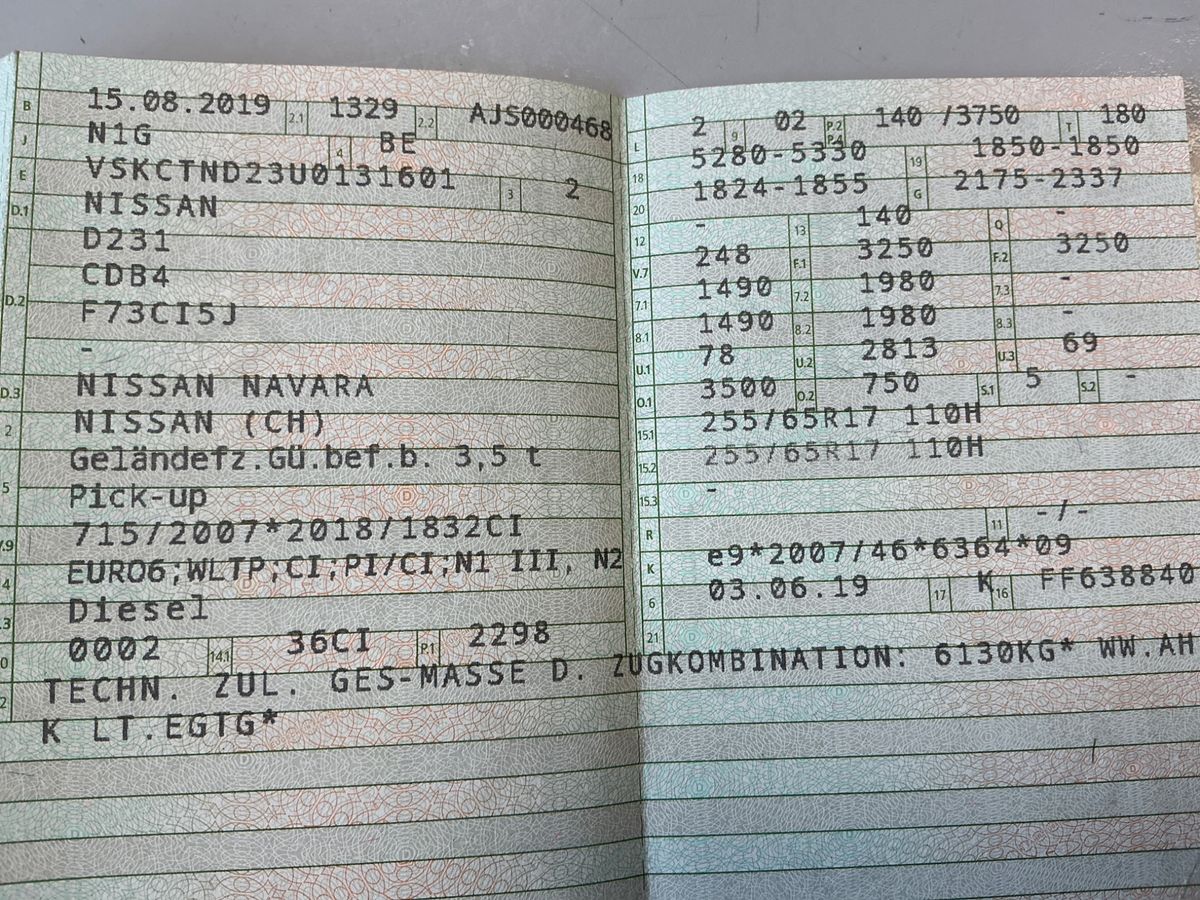 B 15.08.2019 2.1 1329 2.2 AJS000468
J N1G 4 BE
E VSKCTND23U0131601 3 2
D.1 NISSAN
D231
D.2 CDB4
F73CI5J
-
D.3 NISSAN NAVARA
2 NISSAN (CH)
Geländefz.Gü.bef.b. 3,5 t
5 Pick-up
V.9 715/2007*2018/1832CI
4 EURO6;WLTP;CI;PI/CI;N1 III, N2
.3 Diesel
0 0002 14.1 36CI P.1 2298
L 2 9 02 P.2 P.4 140 /3750 T 180
18 5280-5330 19 1850-1850
20 1824-1855 G 2175-2337
12 - 13 140 Q -
V.7 248 F.1 3250 F.2 3250
7.1 1490 7.2 1980 7.3 -
8.1 1490 8.2 1980 8.3 -
U.1 78 U.2 2813 U.3 69
O.1 3500 O.2 750 S.1 5 S.2 -
15.1 255/65R17 110H
15.2 255/65R17 110H
15.3 -
R 11 -/-
K e9*2007/46*6364*09
6 03.06.19 17 K 16 FF638840
21
2 TECHN. ZUL. GES-MASSE D. ZUGKOMBINATION: 6130KG* WW.AH
K LT.EGTG*